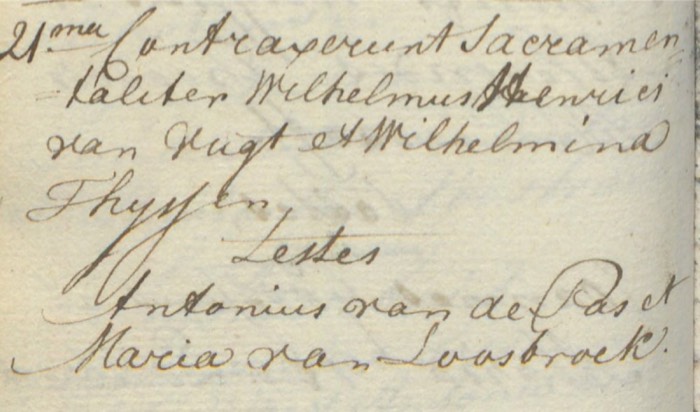 21.ma Contraxerunt Sacramen
=taliter Wilhelmus Henrici
van Vugt et Wilhelmina
Thyssen,
Testes
Antonius van de Pas et
Maria van Loosbroek.